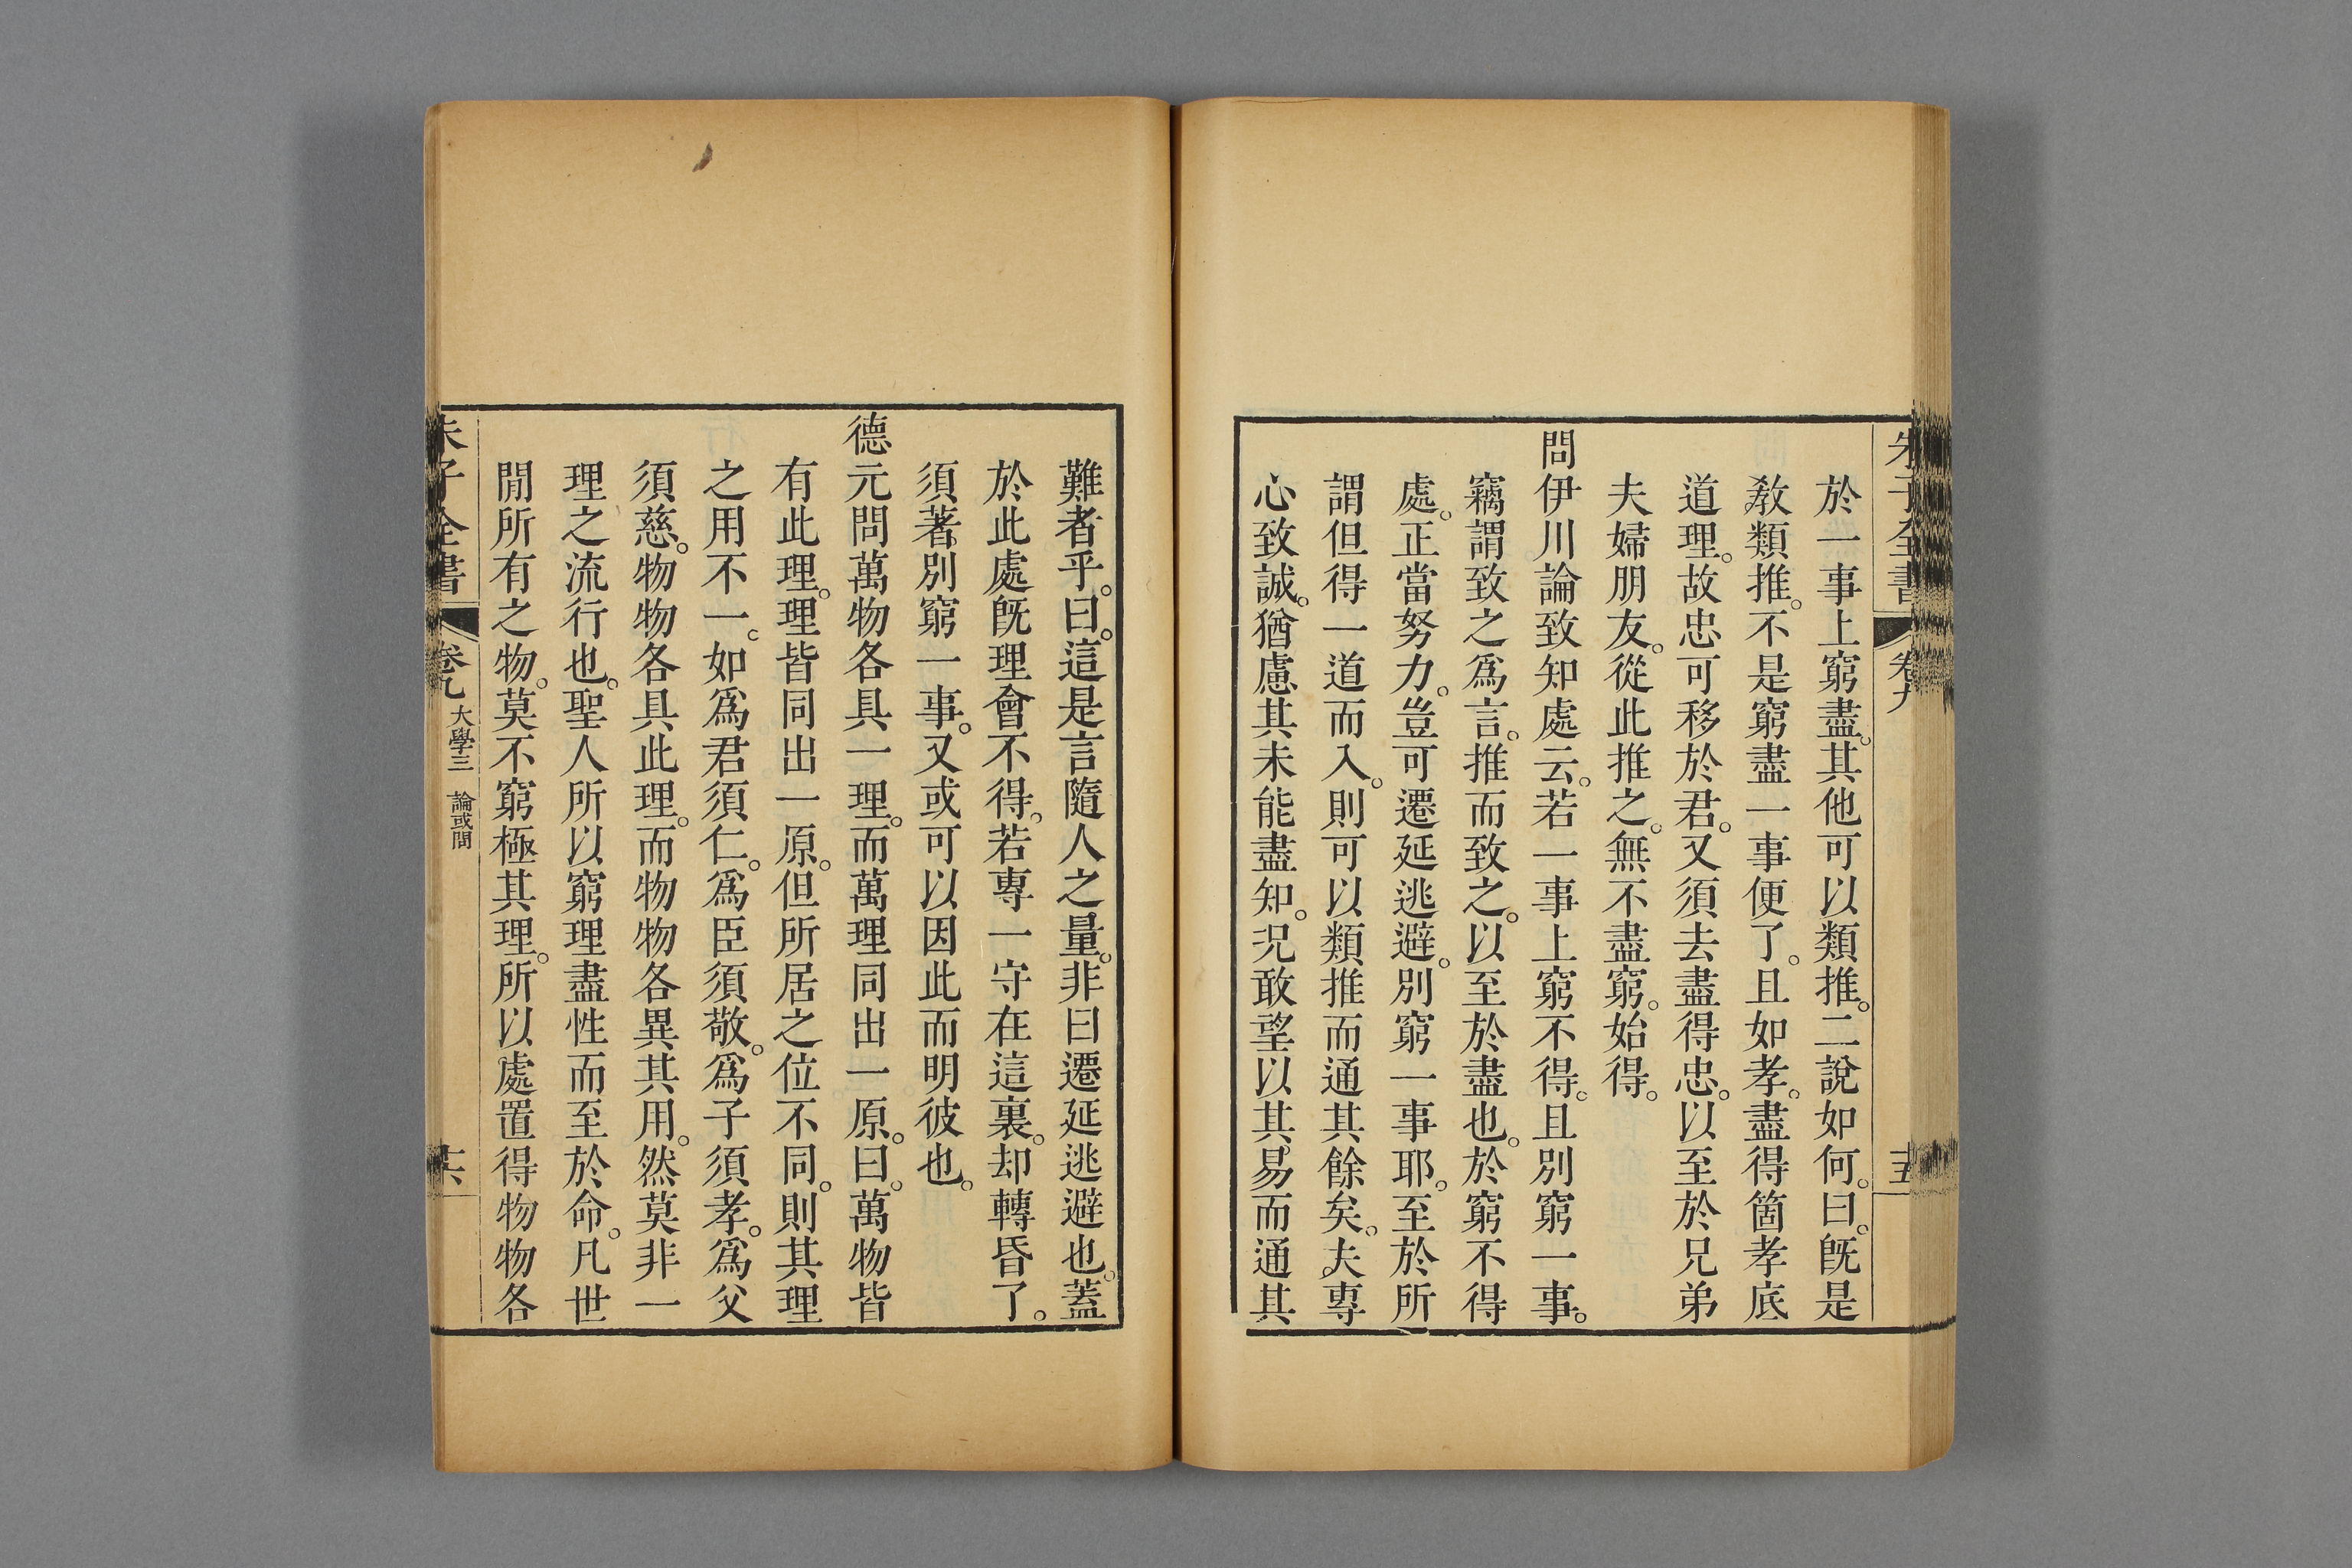 朱子全書 卷九 十五
於一事上窮盡。其他可以類推。二說如何。曰。旣是
敎類推。不是窮盡一事便了。且如孝。盡得箇孝底
道理。故忠可移於君。又須去盡得忠。以至於兄弟
夫婦朋友。從此推之。無不盡窮。始得。
問伊川論致知處云。若一事上窮不得。且別窮一事。
竊謂致之爲言。推而致之。以至於盡也。於窮不得
處。正當努力。豈可遷延逃避。別窮一事耶。至於所
謂但得一道而入。則可以類推而通其餘矣。夫專
心致誠。猶慮其未能盡知。况敢望以其易而通其
難者乎。曰。這是言隨人之量。非曰遷延逃避也。蓋
於此處旣理會不得。若專一守在這裏。却轉昏了。
須著別窮一事。又或可以因此而明彼也。
德元問萬物各具一理。而萬理同出一原。曰。萬物皆
有此理。理皆同出一原。但所居之位不同。則其理
之用不一。如爲君須仁。爲臣須敬。爲子須孝。爲父
須慈。物物各具此理。而物物各異其用。然莫非一
理之流行也。聖人所以窮理盡性而至於命。凡世
閒所有之物。莫不窮極其理。所以處置得物物各
朱子全書 卷九 大學三 論或問 十六